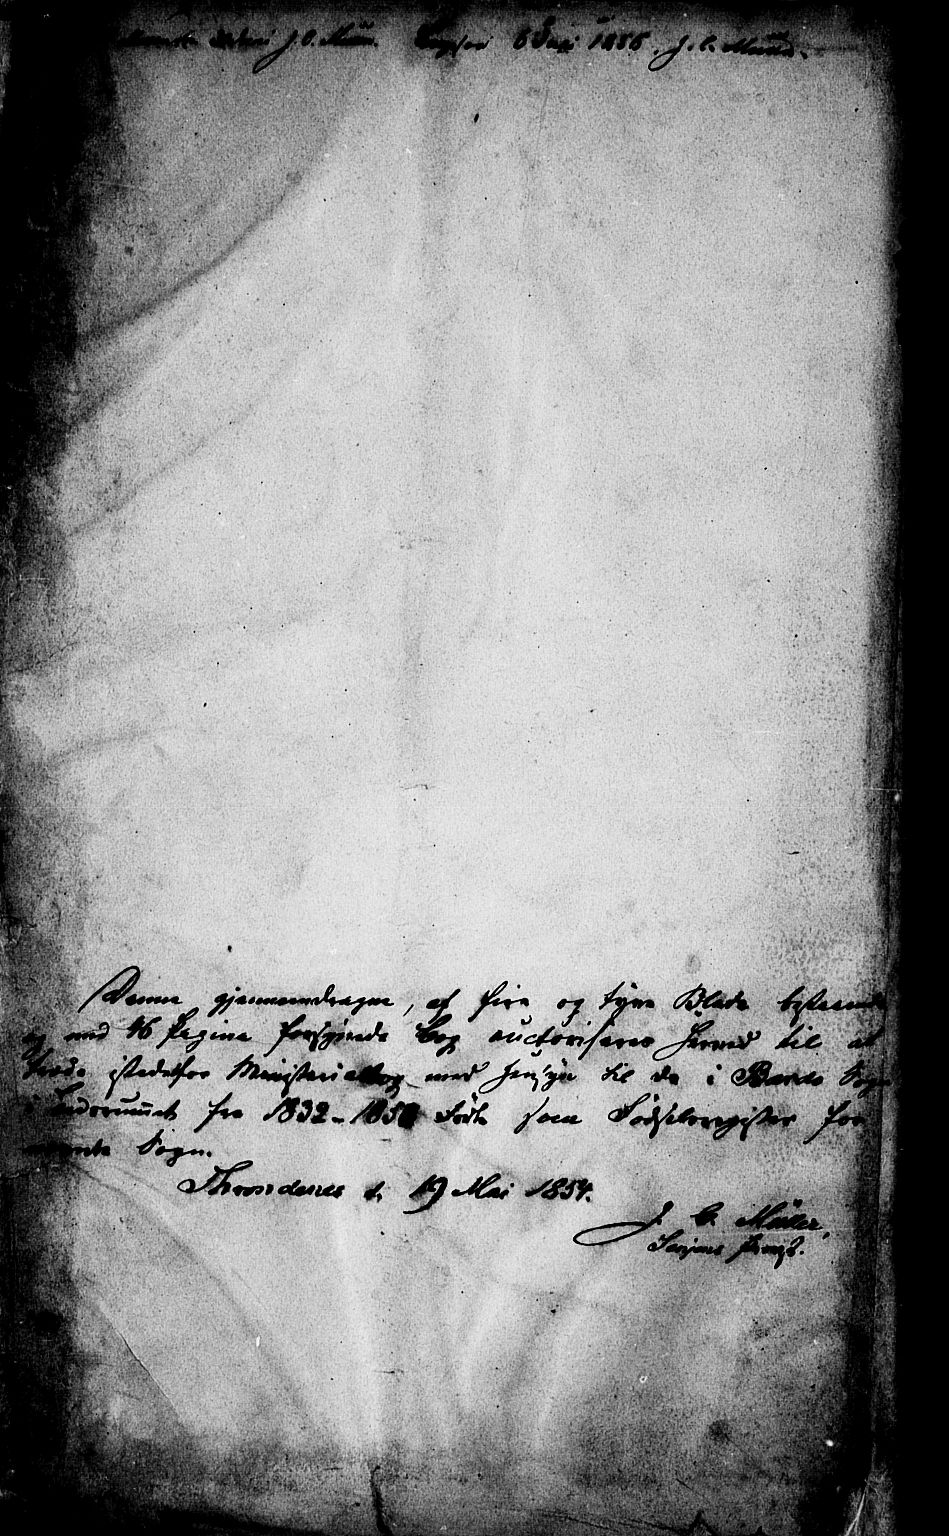 J. C. Müller. 6 Juni 1856. J. C. Müller.
Denne gjennemdragne, af fire og tyve Blade bestaaende
og med 46 Pagina forsynede Bog auctoriseres herved til at
træde istedetfor Ministerialbog med Hensyn til de i Bardo Sogn
i Tidsrummet fra 1832-1850 Fødte som Fødselsregister for
nævnte Sogn.
Throndenes d. 19 Mai 1854.
J. C. Müller,
Senjens Provsti.